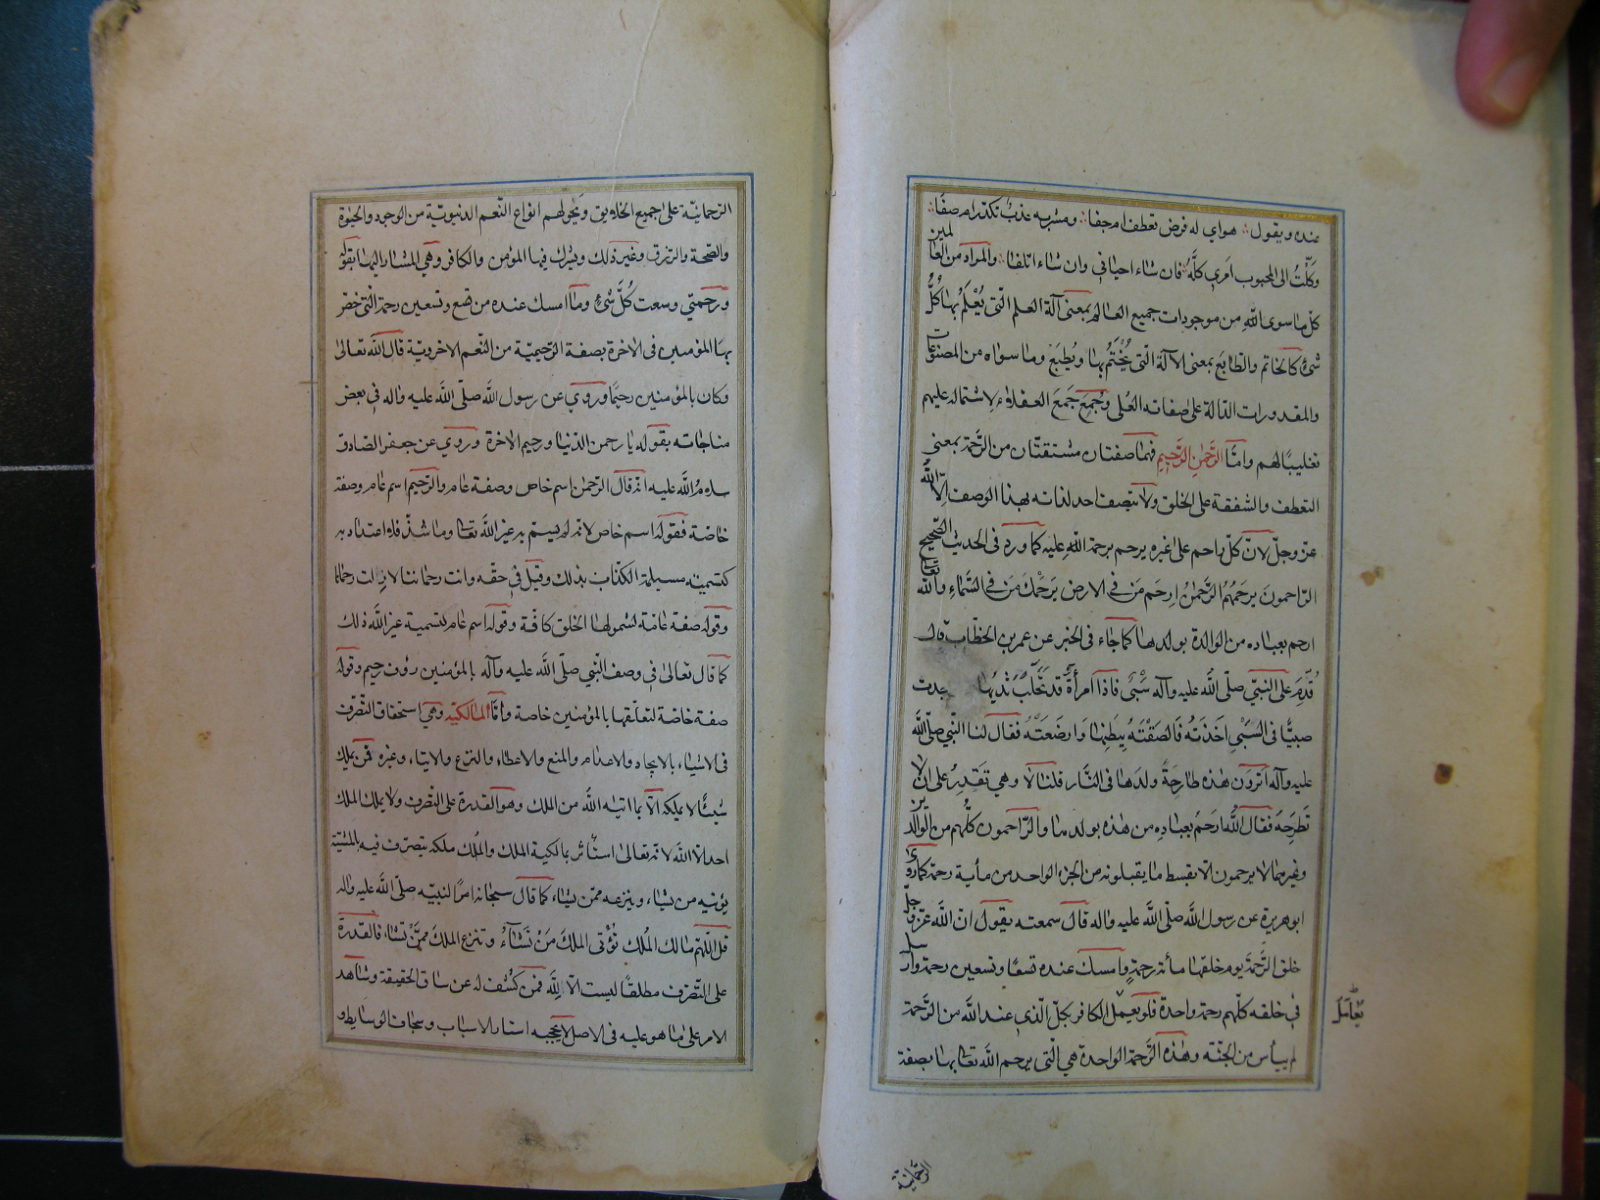 عنده ويقول هواي له فرض تعطف ام جفا ومشربه عذب تكدر ام صفا
وكلت الى المحبوب امري كله فان شاء احياني وان شاء اتلفا والمراد من العالمين
كل ما سوى الله من موجودات جميع العالم بمعنى آلة العلم التي يُعْلَمُ بها كُلُّ
شئ كالخاتم والطابع بمعنى الآلة التي يُخْتَمُ بها ويُطبَعُ وما سواه من المصنوعات
والمقدورات الدالة على صفاته العُلى وجُمِعَ جَمَعَ العقلاء لاشتماله عليهم
تغليبًا لهم وامّا الرَّحمٰنِ الرَّحِيمِ فهما صفتان مشتقتان من الرحمة بمعنى
التعطف والشفقة على الخلق ولا يتصف احد لذاته بهذا الوصف الا الله
عزّ وجلّ لانّ كلّ راحم على غيره يرحم برحمة الله عليه كما ورد في الحديث الصحيح
الرّاحمونَ يرحَمُهُمُ الرَّحمٰنُ اِرحَم مَن في الارض يَرحَمْكَ مَن في السَّماءِ والله تعالى
ارحم بعباده من الوالدة بولدها كما جاء في الخبر عن عمر بن الخطاب قال
قُدِّمَ على النبيّ صلّى الله عليه وآله سَبْيٌ فاذا امرأةٌ قد تحَلَّبَ ثَدْيُها وجدت
صبيًّا في السَّبْيِ اخَذتهُ فالصَقَتْهُ بِبَطْنِها وارضَعَتْهُ فقال لنا النّبي صلّى الله
عليه وآله اترَون هٰذه طارِحَةً ولدَها في النّار قلنا لا وهي تَقدِرُ على ان لا
تَطرَحَه فقال اللهُ ارحَمُ بعباده من هٰذه بولدها والرّاحمون كلُّهم من الوالدين
وغيرهما لا يرحمون الا بقسط ما يقبلونه من الجزء الواحد من مأية رحمة كما روى
ابو هريرة عن رسول الله صلّى الله عليه واله قال سمعته يقول انّ الله عزّ وجلّ
خلق الرّحمة يوم خلقها مأئة رحمةٍ وامسك عنده تسعًا وتسعين رحمة وارسل
في خلقه كلّهم رحمة واحدة فلو يعمل الكافر بكلّ الّذي عند الله من الرّحمة
لم ييأس من الجنّة وهٰذه الرَّحمة الواحدة هي الّتي يرحم الله تعالى بها بصفة
الرحمانية
الرّحمانيّة على جميع الخلايق ويخولهم انواع النّعم الدنيويّة من الوجود والحيٰوة
والصّحة والرزق وغير ذلك ويشرك فيها المؤمن والكافر وهي المشار اليها بقوله
ورحمتي وسعت كُلَّ شَئٍ وما امسك عنده من تسع وتسعين رحمة الّتي خصّ
بها المؤمنين في الآخرة بصفة الرّحيميّة من النّعم الاخرويّة قال الله تعالى
وكان بالمؤمنين رحيمًا وروي عن رسول الله صلّى الله عليه واله في بعض
مناجاته بقوله يا رحمن الدّنيا ورحيم الآخرة وروي عن جعفر الصّادق
سلام الله عليه انّه قال الرّحمٰن اسم خاص وصفة عام والرّحيم اسم عام وصفة
خاصّة فقوله اسم خاص لانّه لم يسمّ به غير الله تعالى وما شذّ فلا اعتداد به
كتسميته مسيلمة الكذّاب بذلك وقيل في حقّه وانت رحماننا لا زالت رحمانا
وقوله صفة عامّة لشمولها الخلق كافّة وقوله اسم عام لتسمية غير الله ذلك
كما قال تعالى في وصف النّبي صلّى الله عليه وآله بالمؤمنين رؤف رحيم وقوله
صفة خاصّة لتعلّقها بالمؤمنين خاصة وامّا المالكيّة وهي استحقاق التّصرّف
في الاشياء بالايجاد والاعدام والمنع والاعطاء والنزع والايتاء وغيره فمن يملك
شيئًا لا يملكه الّا بما اتيه الله من الملك وهو القدرة على التّصرّف ولا يملك الملك
احد الّا الله لانّه تعالى استأثر بمالكية الملك والمُلك ملكه يتصرّف فيه بالمشيّة
يؤتيه من يشاء وينزعه ممّن يشاء كما قال سبحانه امرًا لنبيّه صلّى الله عليه واله
قل اللّهمّ مالك المُلك تؤتى الملك مَنْ تَشَآءُ وتنزع الملك ممّن تشاء فالقدرة
على التّصرّف مطلقًا ليست الّا لله فمن كُشف له عن ساق الحقيقة وشاهد
الامر على ما هو عليه في الاصل لا يحجبه استار الاسباب وسجاف الوسايط و